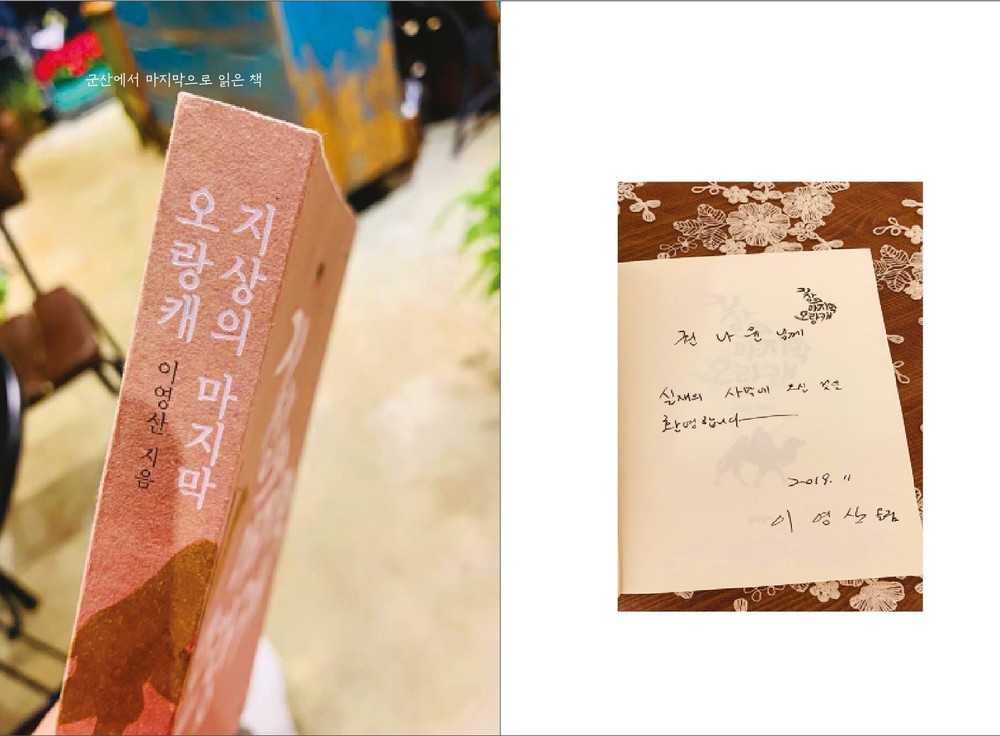 군산에서 마지막으로 읽은 책
지상의 마지막
오랑캐
이영산 지음
지상의
마지막
오랑캐
전 나 원 님께
실재의 사막에 오신 것을
환영합니다
2019. 11
이 영 산 드림